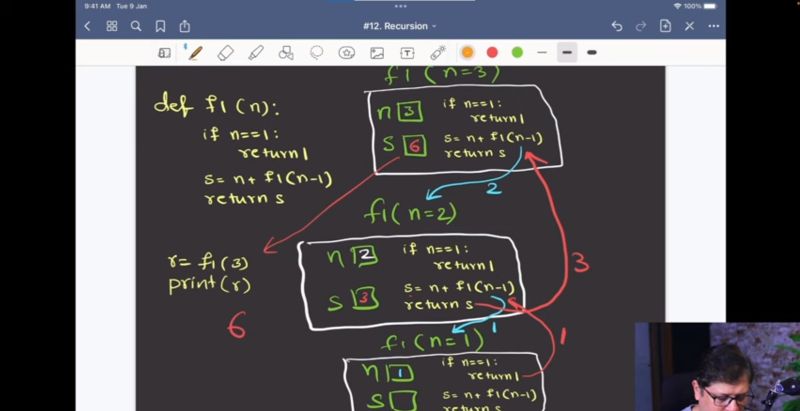 9:41 AM Tue 9 Jan
100%
#12. Recursion
def f1(n):
if n==1:
return 1
s=n+ f1(n-1)
return s
r= f1(3)
print(r)
6
f1(n=3)
n 3
s 6
if n==1:
return 1
s=n+ f1(n-1)
return s
2
f1(n=2)
n 2
s 3
if n==1:
return 1
s=n+ f1(n-1)
return s
3
1
1
f1(n=1)
n 1
s
if n==1:
return 1
s=n+ f1(n-1)
return s